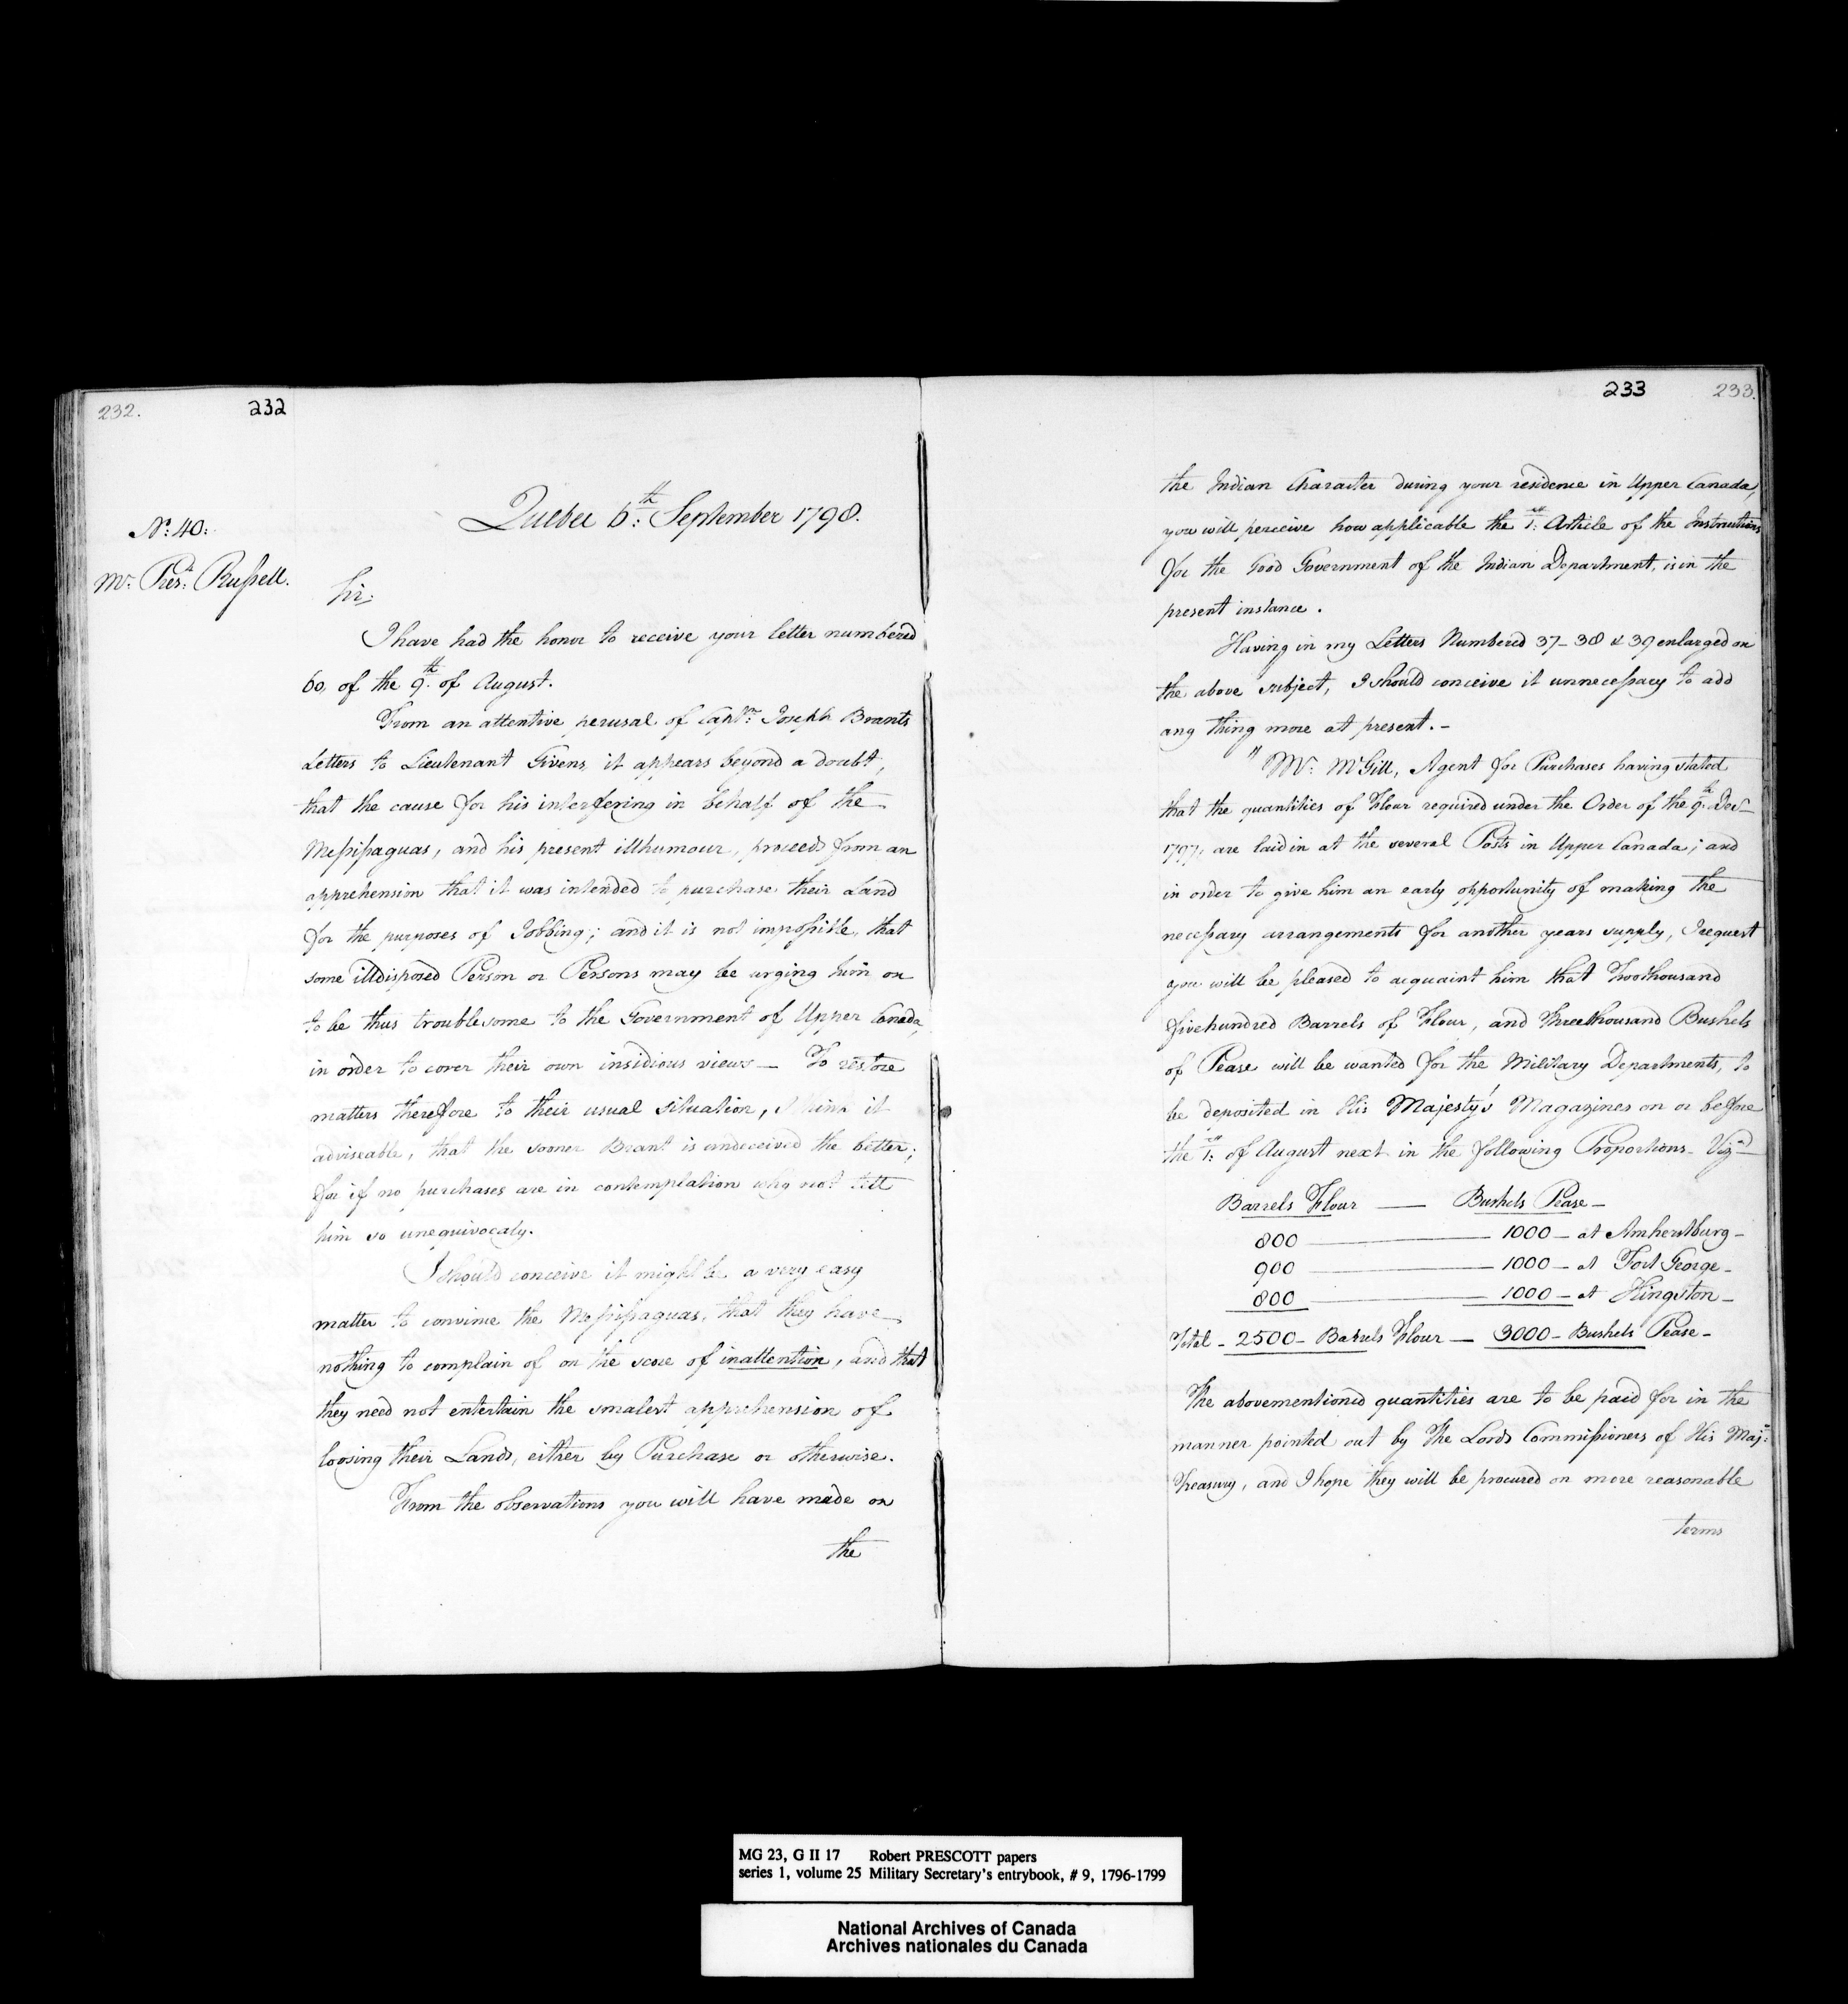 232.
232
Quebec 6th: September 1798.
No: 40:
Mr. Presdt: Russell.
Sir:
I have had the honor to receive your letter numbered
60, of the 9th. of August.
From an attentive perusal of Captn: Joseph Brants
Letters to Lieutenant Givens, it appears beyond a doubt,
that the cause for his interfering in behalf of the
Messissaguas, and his present illhumour, proceeds from an
apprehension that it was intended to purchase their Land
for the purposes of Jobbing; and it is not impossible, that
some illdisposed Person or Persons may be urging him on
to be thus troublesome to the Government of Upper Canada,
in order to cover their own insidious views — To restore
matters therefore to their usual situation, I think it
adviseable, that the sooner Brant is undeceived the better;
for if no purchases are in contemplation why not tell
him so unequivocaly.
I should conceive it might be a very easy
matter to convince the Messissaguas, that they have
nothing to complain of on the score of inattention, and that
they need not entertain the smalest apprehension of
loosing their Lands, either by Purchase or otherwise.
From the observations you will have made on
the
233
233.
the Indian Character during your residence in Upper Canada,
you will perceive how applicable the 1st: Article of the Instructions
for the Good Government of the Indian Department, is in the
present instance.
Having in my Letters Numbered 37–38 & 39 enlarged on
the above subject, I should conceive it unnecessary to add
any thing more at present.–
" Mr. McGill, Agent for Purchases having stated
that the quantities of Flour required under the Order of the 9th. Decr
1797, are laid in at the several Posts in Upper Canada; and
in order to give him an early opportunity of making the
necessary arrangements for another years supply, I request
you will be pleased to acquaint him that Twothousand
fivehundred Barrels of Flour, and Threethousand Bushels
of Pease will be wanted for the Military Departments, to
be deposited in His Majesty's Magazines on or before
the 1st: of August next in the following Proportions – Vizt
Barrels Flour — Bushels Pease –
800 — 1000 – at Amherstburg –
900 — 1000 – at Fort George –
800 — 1000 – at Kingston –
Total – 2500 – Barrels Flour — 3000 – Bushels Pease –
The abovementioned quantities are to be paid for in the
manner pointed out by The Lords Commissioners of His Maj:
Treasury, and I hope they will be procured on more reasonable
terms
MG 23, G II 17 Robert PRESCOTT papers
series 1, volume 25 Military Secretary's entrybook, # 9, 1796-1799
National Archives of Canada
Archives nationales du Canada